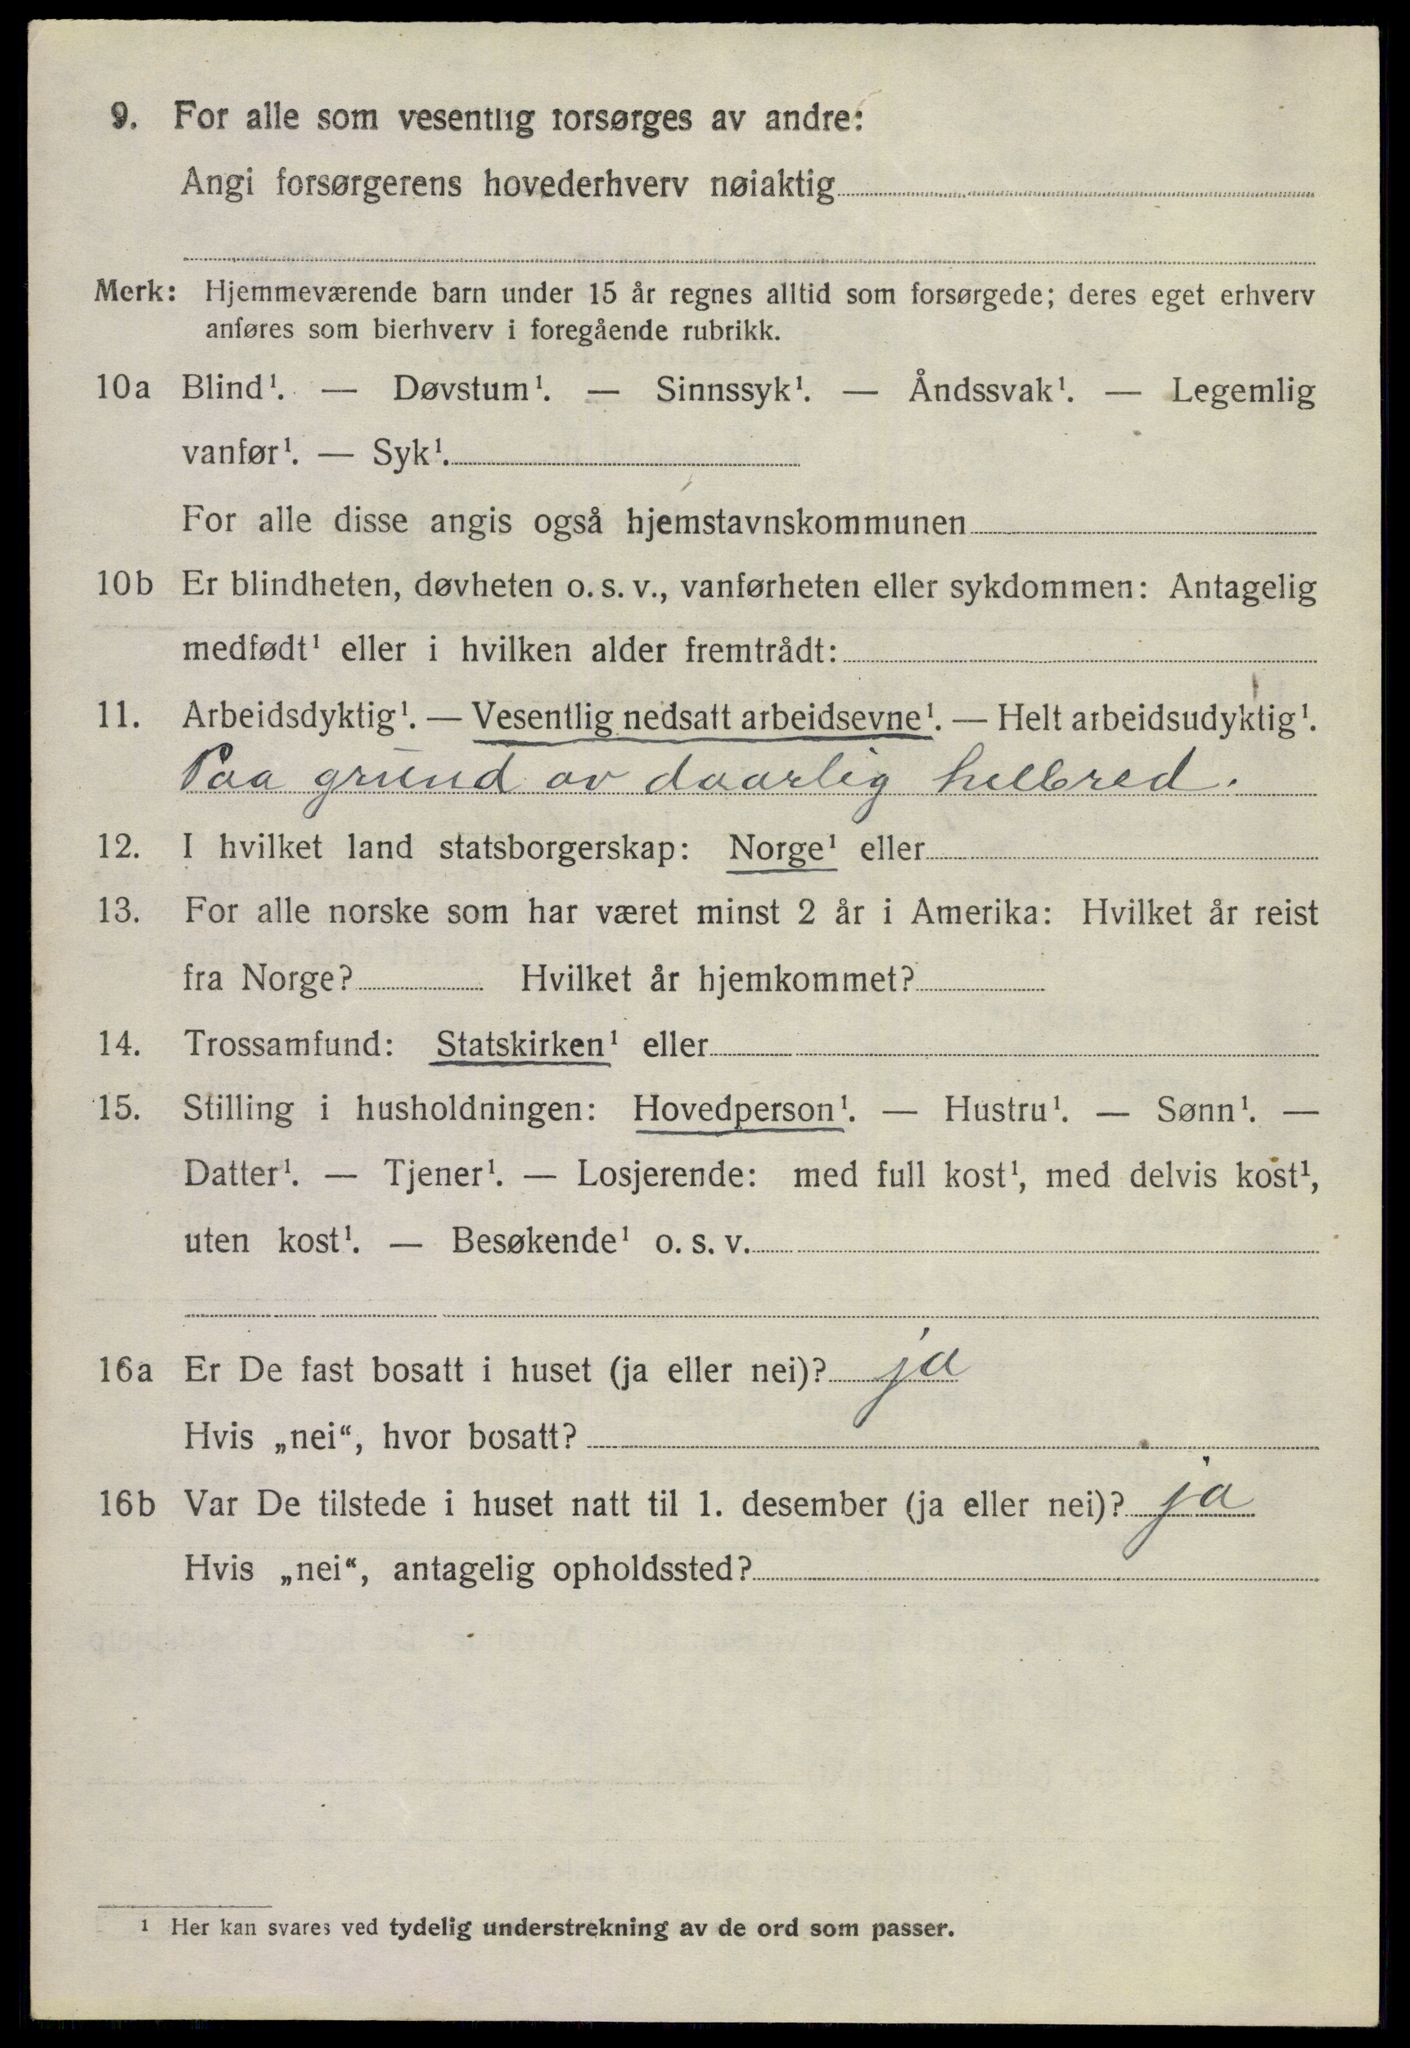 9. For alle som vesentlig forsørges av andre:
Angi forsørgerens hovederhverv nøiaktig
Merk: Hjemmeværende barn under 15 år regnes alltid som forsørgede; deres eget erhverv
anføres som bierhverv i foregående rubrikk.
10a Blind¹. — Døvstum¹. — Sinnssyk¹. — Åndssvak¹. — Legemlig
vanfør¹. — Syk¹.
For alle disse angis også hjemstavnskommunen
10b Er blindheten, døvheten o. s. v., vanførheten eller sykdommen: Antagelig
medfødt¹ eller i hvilken alder fremtrådt:
11. Arbeidsdyktig¹. — Vesentlig nedsatt arbeidsevne¹. — Helt arbeidsudyktig¹.
Paa grund av daarlig helbred.
12. I hvilket land statsborgerskap: Norge¹ eller
13. For alle norske som har været minst 2 år i Amerika: Hvilket år reist
fra Norge? Hvilket år hjemkommet?
14. Trossamfund: Statskirken¹ eller
15. Stilling i husholdningen: Hovedperson¹. — Hustru¹. — Sønn¹. —
Datter¹. — Tjener¹. — Losjerende: med full kost¹, med delvis kost¹,
uten kost¹. — Besøkende¹ o. s. v.
16a Er De fast bosatt i huset (ja eller nei)? ja
Hvis „nei“, hvor bosatt?
16b Var De tilstede i huset natt til 1. desember (ja eller nei)? ja
Hvis „nei“, antagelig opholdssted?
¹ Her kan svares ved tydelig understrekning av de ord som passer.